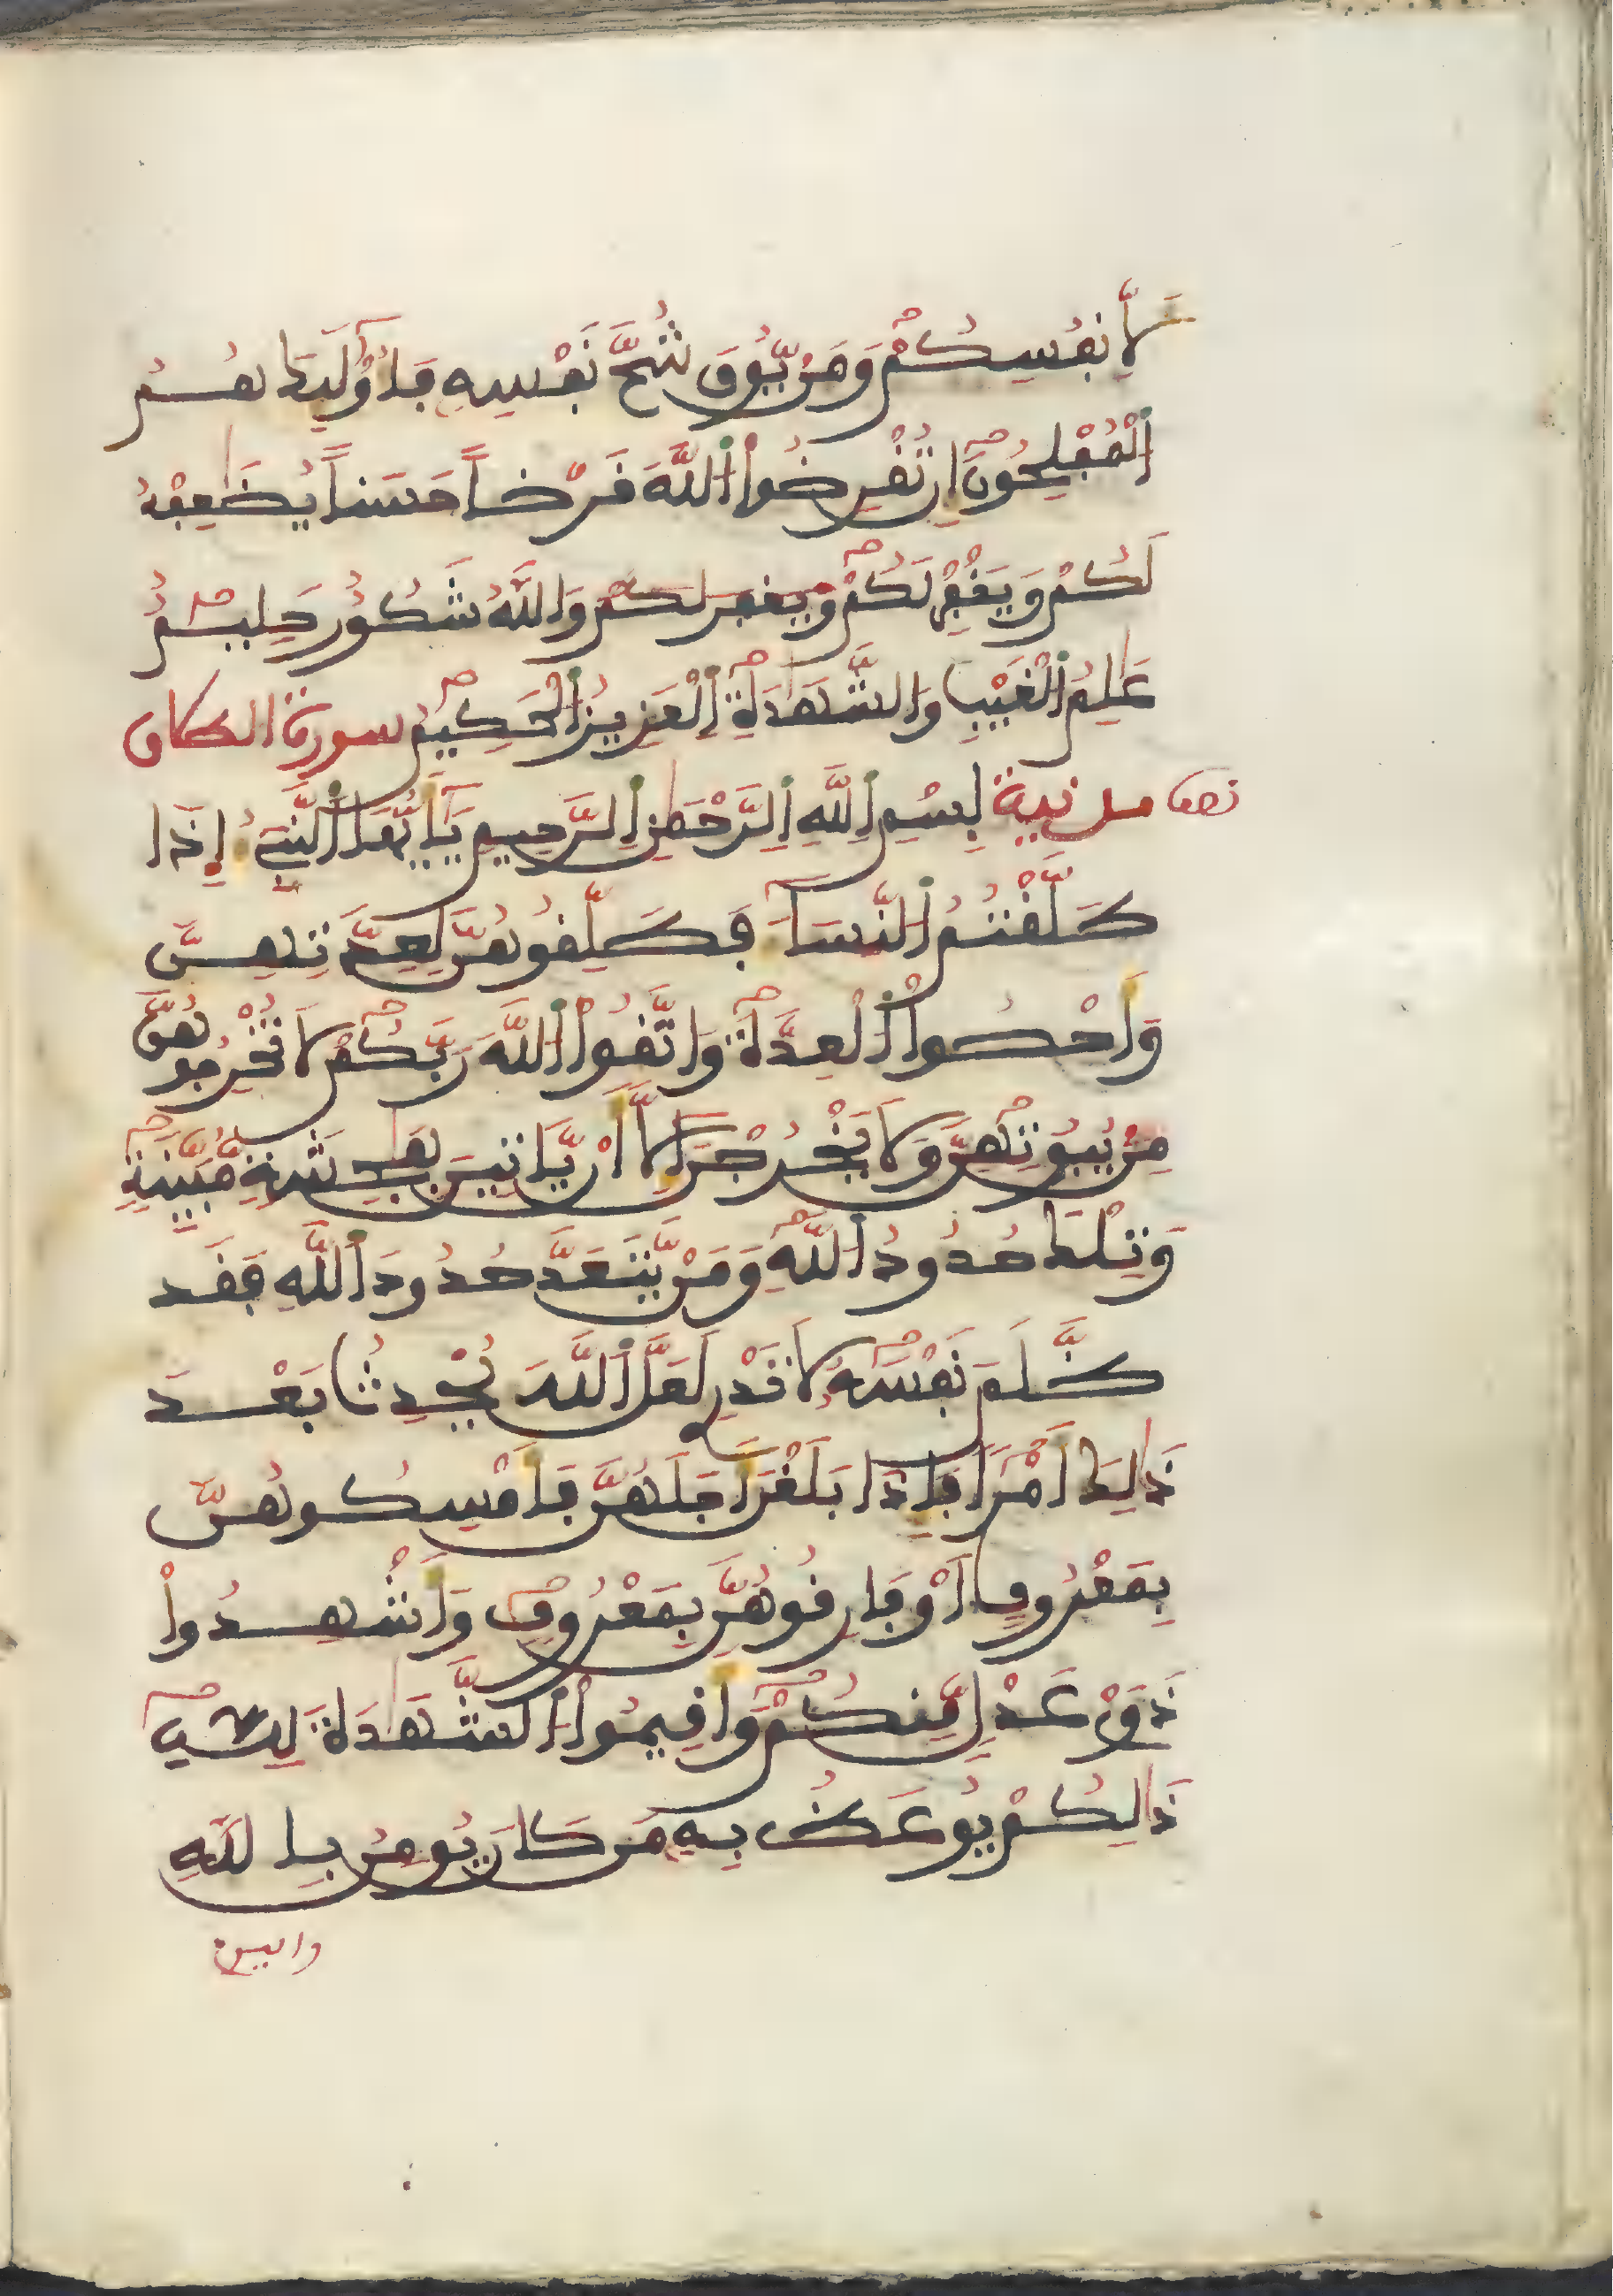 لِّأَنفُسِكُمْ وَمَنْ يُّوقَ شُحَّ نَفْسِهِ فَأُوْلَٰٓئِكَ هُمُ
اُ۬لْمُفْلِحُونَ إِن تُقْرِضُواْ اُ۬للَّهَ قَرْضاً حَسَناً يُضَٰعِفْهُ
لَكُمْ وَيَغْفِرْ لَكُمْ ويغفر لكم وَاللَّهُ شَكُورٌ حَلِيمٌ
عَٰلِمُ اُ۬لْغَيْبِ وَالشَّهَٰدَةِ اِ۬لْعَزِيزُ اُ۬لْحَكِيمُ سورة الطلاق
مدنية بِسْمِ اِ۬للَّهِ اِ۬لرَّحْمَٰنِ اِ۬لرَّحِيمِ يَٰٓأَيُّهَا اَ۬لنَّبِےٓءُ إِذَا
طَلَّقْتُمُ اُ۬لنِّسَآءَ فَطَلِّقُوهُنَّ لِعِدَّتِهِنَّ
وَأَحْصُواْ اُ۬لْعِدَّةَ وَاتَّقُواْ اُ۬للَّهَ رَبَّكُمْ لَا تُخْرِجُوهُنَّ
مِنْ بُيُوتِهِنَّ وَلَا يَخْرُجْنَ إِلَّا أَنْ يَّاتِينَ بِفَٰحِشَةٍ مُّبَيَّنَةٍ
وَتِلْكَ حُدُودُ اُ۬للَّهِ وَمَنْ يَّتَعَدَّ حُدُودَ اَ۬للَّهِ فَقَد
ظَّلَمَ نَفْسَهُ لَا تَدْرِے لَعَلَّ اَ۬للَّهَ يُحْدِثُ بَعْدَ
ذَٰلِكَ أَمْراً فَإِذَا بَلَغْنَ أَجَلَهُنَّ فَأَمْسِكُوهُنَّ
بِمَعْرُوفٍ أَوْ فَارِقُوهُنَّ بِمَعْرُوفٍ وَأَشْهِدُواْ
ذَوَےْ عَدْلٍ مِّنكُمْ وَأَقِيمُواْ اُ۬لشَّهَٰدَةَ لِلهِ
ذَٰلِكُمْ يُوعَظُ بِهِ مَن كَانَ يُومِنُ بِاللَّهِ
واليوم